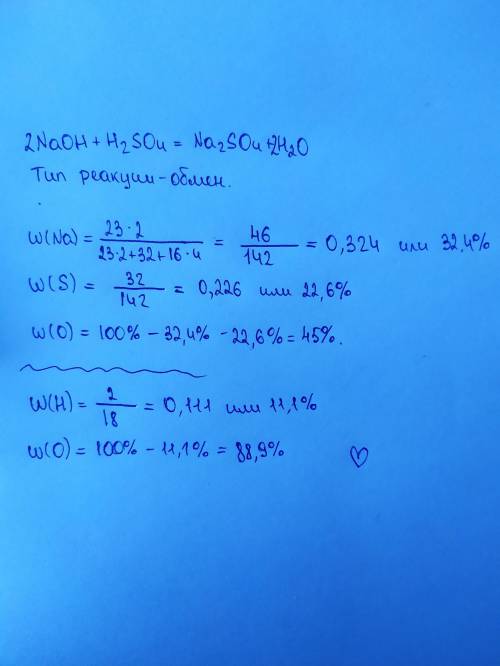 2NaOH + H₂SO₄ = Na₂SO₄ + 2H₂O
Тип реакции - обмен.
W(Na) = 23·2 / 23·2+32+16·4 = 46 / 142 = 0,324 или 32,4%
W(S) = 32 / 142 = 0,226 или 22,6%
W(O) = 100% - 32,4% - 22,6% = 45%.
W(H) = 2 / 18 = 0,111 или 11,1%
W(O) = 100% - 11,1% = 88,9%